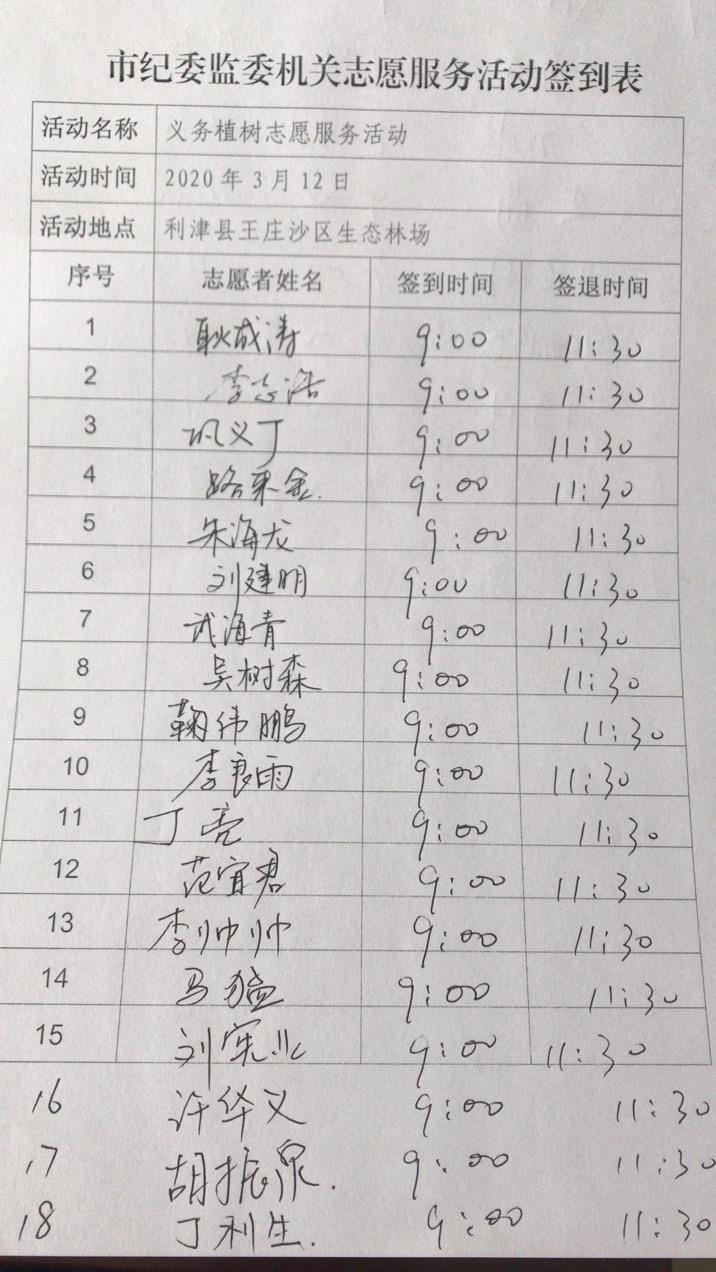 市纪委监委机关志愿服务活动签到表
活动名称 义务植树志愿服务活动
活动时间 2020年3月12日
活动地点 利津县王庄沙区生态林场
序号 志愿者姓名 签到时间 签退时间
1 耿成涛 9:00 11:30
2 李志浩 9:00 11:30
3 巩义丁 9:00 11:30
4 路来金. 9:00 11:30
5 朱海龙 9:00 11:30
6 刘建明 9:00 11:30
7 武海青 9:00 11:30
8 吴树森 9:00 11:30
9 鞠伟鹏 9:00 11:30
10 李良雨 9:00 11:30
11 丁亮 9:00 11:30
12 范宜君 9:00 11:30
13 李帅帅 9:00 11:30
14 马猛 9:00 11:30
15 刘宪业 9:00 11:30
16 许华义 9:00 11:30
17 胡振泉. 9:00 11:30
18 丁利生. 9:00 11:30